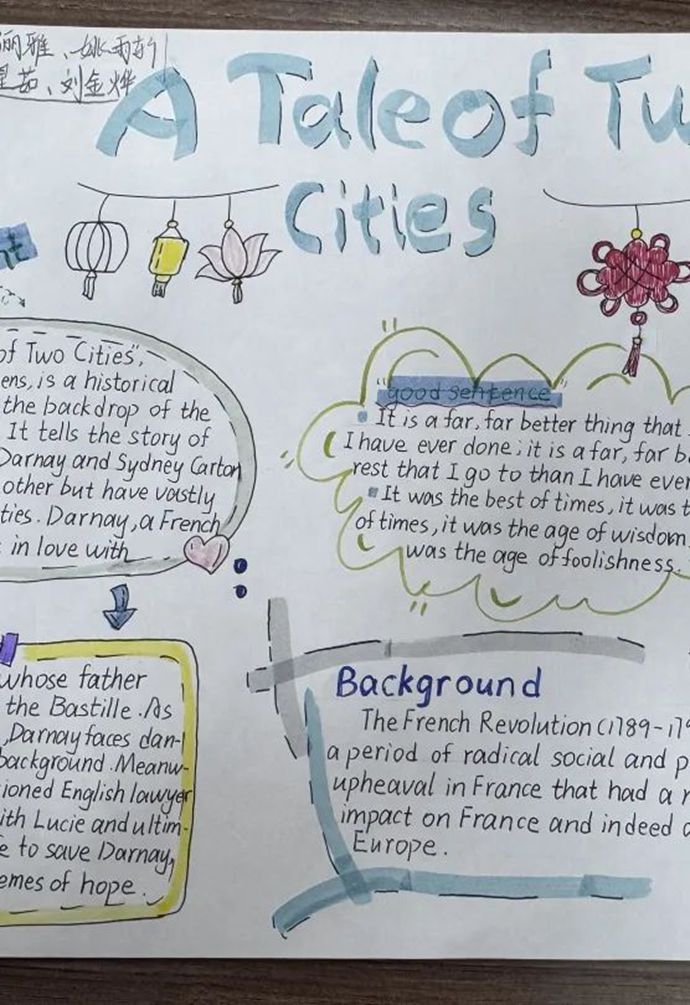 丽雅、姚雨轩
茹、刘金烨
A Tale of Tw
Cities
nt
of Two Cities",
ens, is a historical
the backdrop of the
It tells the story of
Darnay and Sydney Carton
other but have vastly
ties. Darnay, a French
in love with
whose father
the Bastille. As
, Darnay faces dan-
background. Meanw-
ioned English lawyer
ith Lucie and ultim-
e to save Darnay,
emes of hope.
"good sentence"
It is a far, far better thing that
I have ever done; it is a far, far b
rest that I go to than I have ever
It was the best of times, it was t
of times, it was the age of wisdom,
was the age of foolishness.
Background
The French Revolution (1789-179
a period of radical social and p
upheaval in France that had a
impact on France and indeed
Europe.